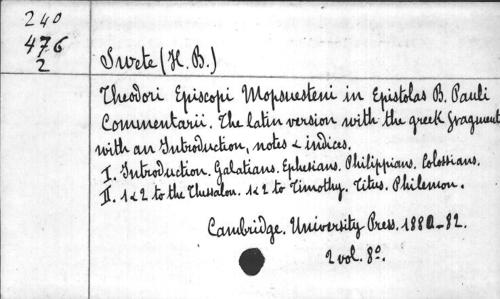 240
476
2
Swete (H. B.)
Theodori Episcopi Mopsuesteni in Epistolas B. Pauli
Commentarii. The latin version with the greek fragment
with an Introduction, notes & indices.
I. Introduction. Galatians. Ephesians. Philippians. Colossians.
II. 1 & 2 to the Thessalon. 1 & 2 to Timothy. Titus. Philemon.
Cambridge. University Press. 1880-82.
2 vol. 8º.